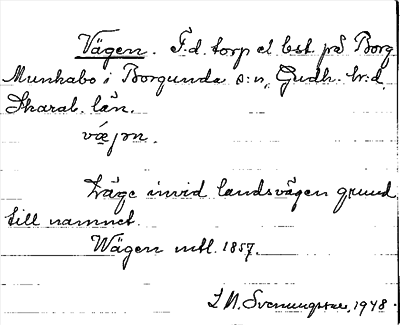 Vägen. F.d. torp el. bst. på Borg
Munkabo i Borgunda s:n, Gudh. h:d,
Skarab. län.
Läge invid landsvägen grund
till namnet.
Wägen mtl. 1857.
1948.